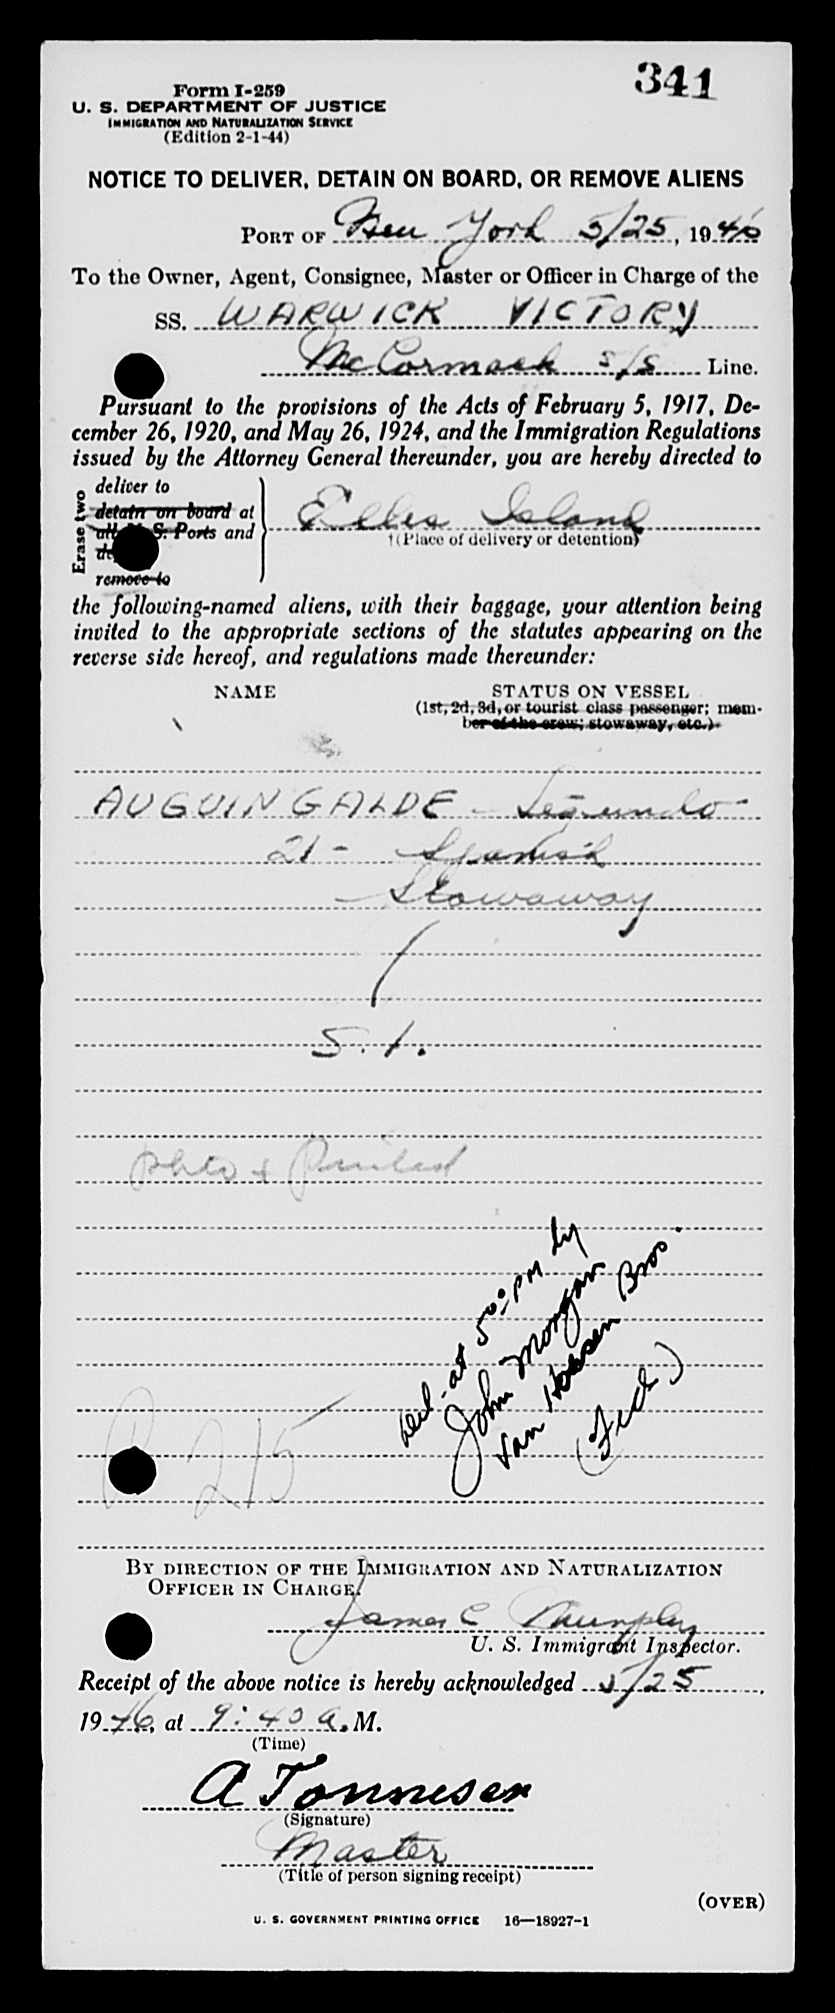 341
Form I-259
U. S. DEPARTMENT OF JUSTICE
IMMIGRATION AND NATURALIZATION SERVICE
(Edition 2-1-44)
NOTICE TO DELIVER, DETAIN ON BOARD, OR REMOVE ALIENS
PORT OF New York 5/25, 1946
To the Owner, Agent, Consignee, Master or Officer in Charge of the
SS. WARWICK VICTORY
McCormack S/S Line.
Pursuant to the provisions of the Acts of February 5, 1917, De-
cember 26, 1920, and May 26, 1924, and the Immigration Regulations
issued by the Attorney General thereunder, you are hereby directed to
Erase two
deliver to
detain on board at
all U. S. Ports and
remove to
Ellis Island
†(Place of delivery or detention)
the following-named aliens, with their baggage, your attention being
invited to the appropriate sections of the statutes appearing on the
reverse side hereof, and regulations made thereunder:
NAME STATUS ON VESSEL
(1st, 2d, 3d, or tourist class passenger; mem-
ber of the crew; stowaway, etc.)
AUGUINGALDE - Segundo
21 - Spanish
Stowaway
S. I.
photo & Printed
Del. at 5:00 PM by
John Morgan
Van Hoesen Bros.
215
BY DIRECTION OF THE IMMIGRATION AND NATURALIZATION
OFFICER IN CHARGE.
James C Murphy
U. S. Immigrant Inspector.
Receipt of the above notice is hereby acknowledged 5/25,
1946, at 9:40 A.M.
(Time)
A Tonnesen
(Signature)
Master
(Title of person signing receipt)
(OVER)
U. S. GOVERNMENT PRINTING OFFICE 16—18927-1